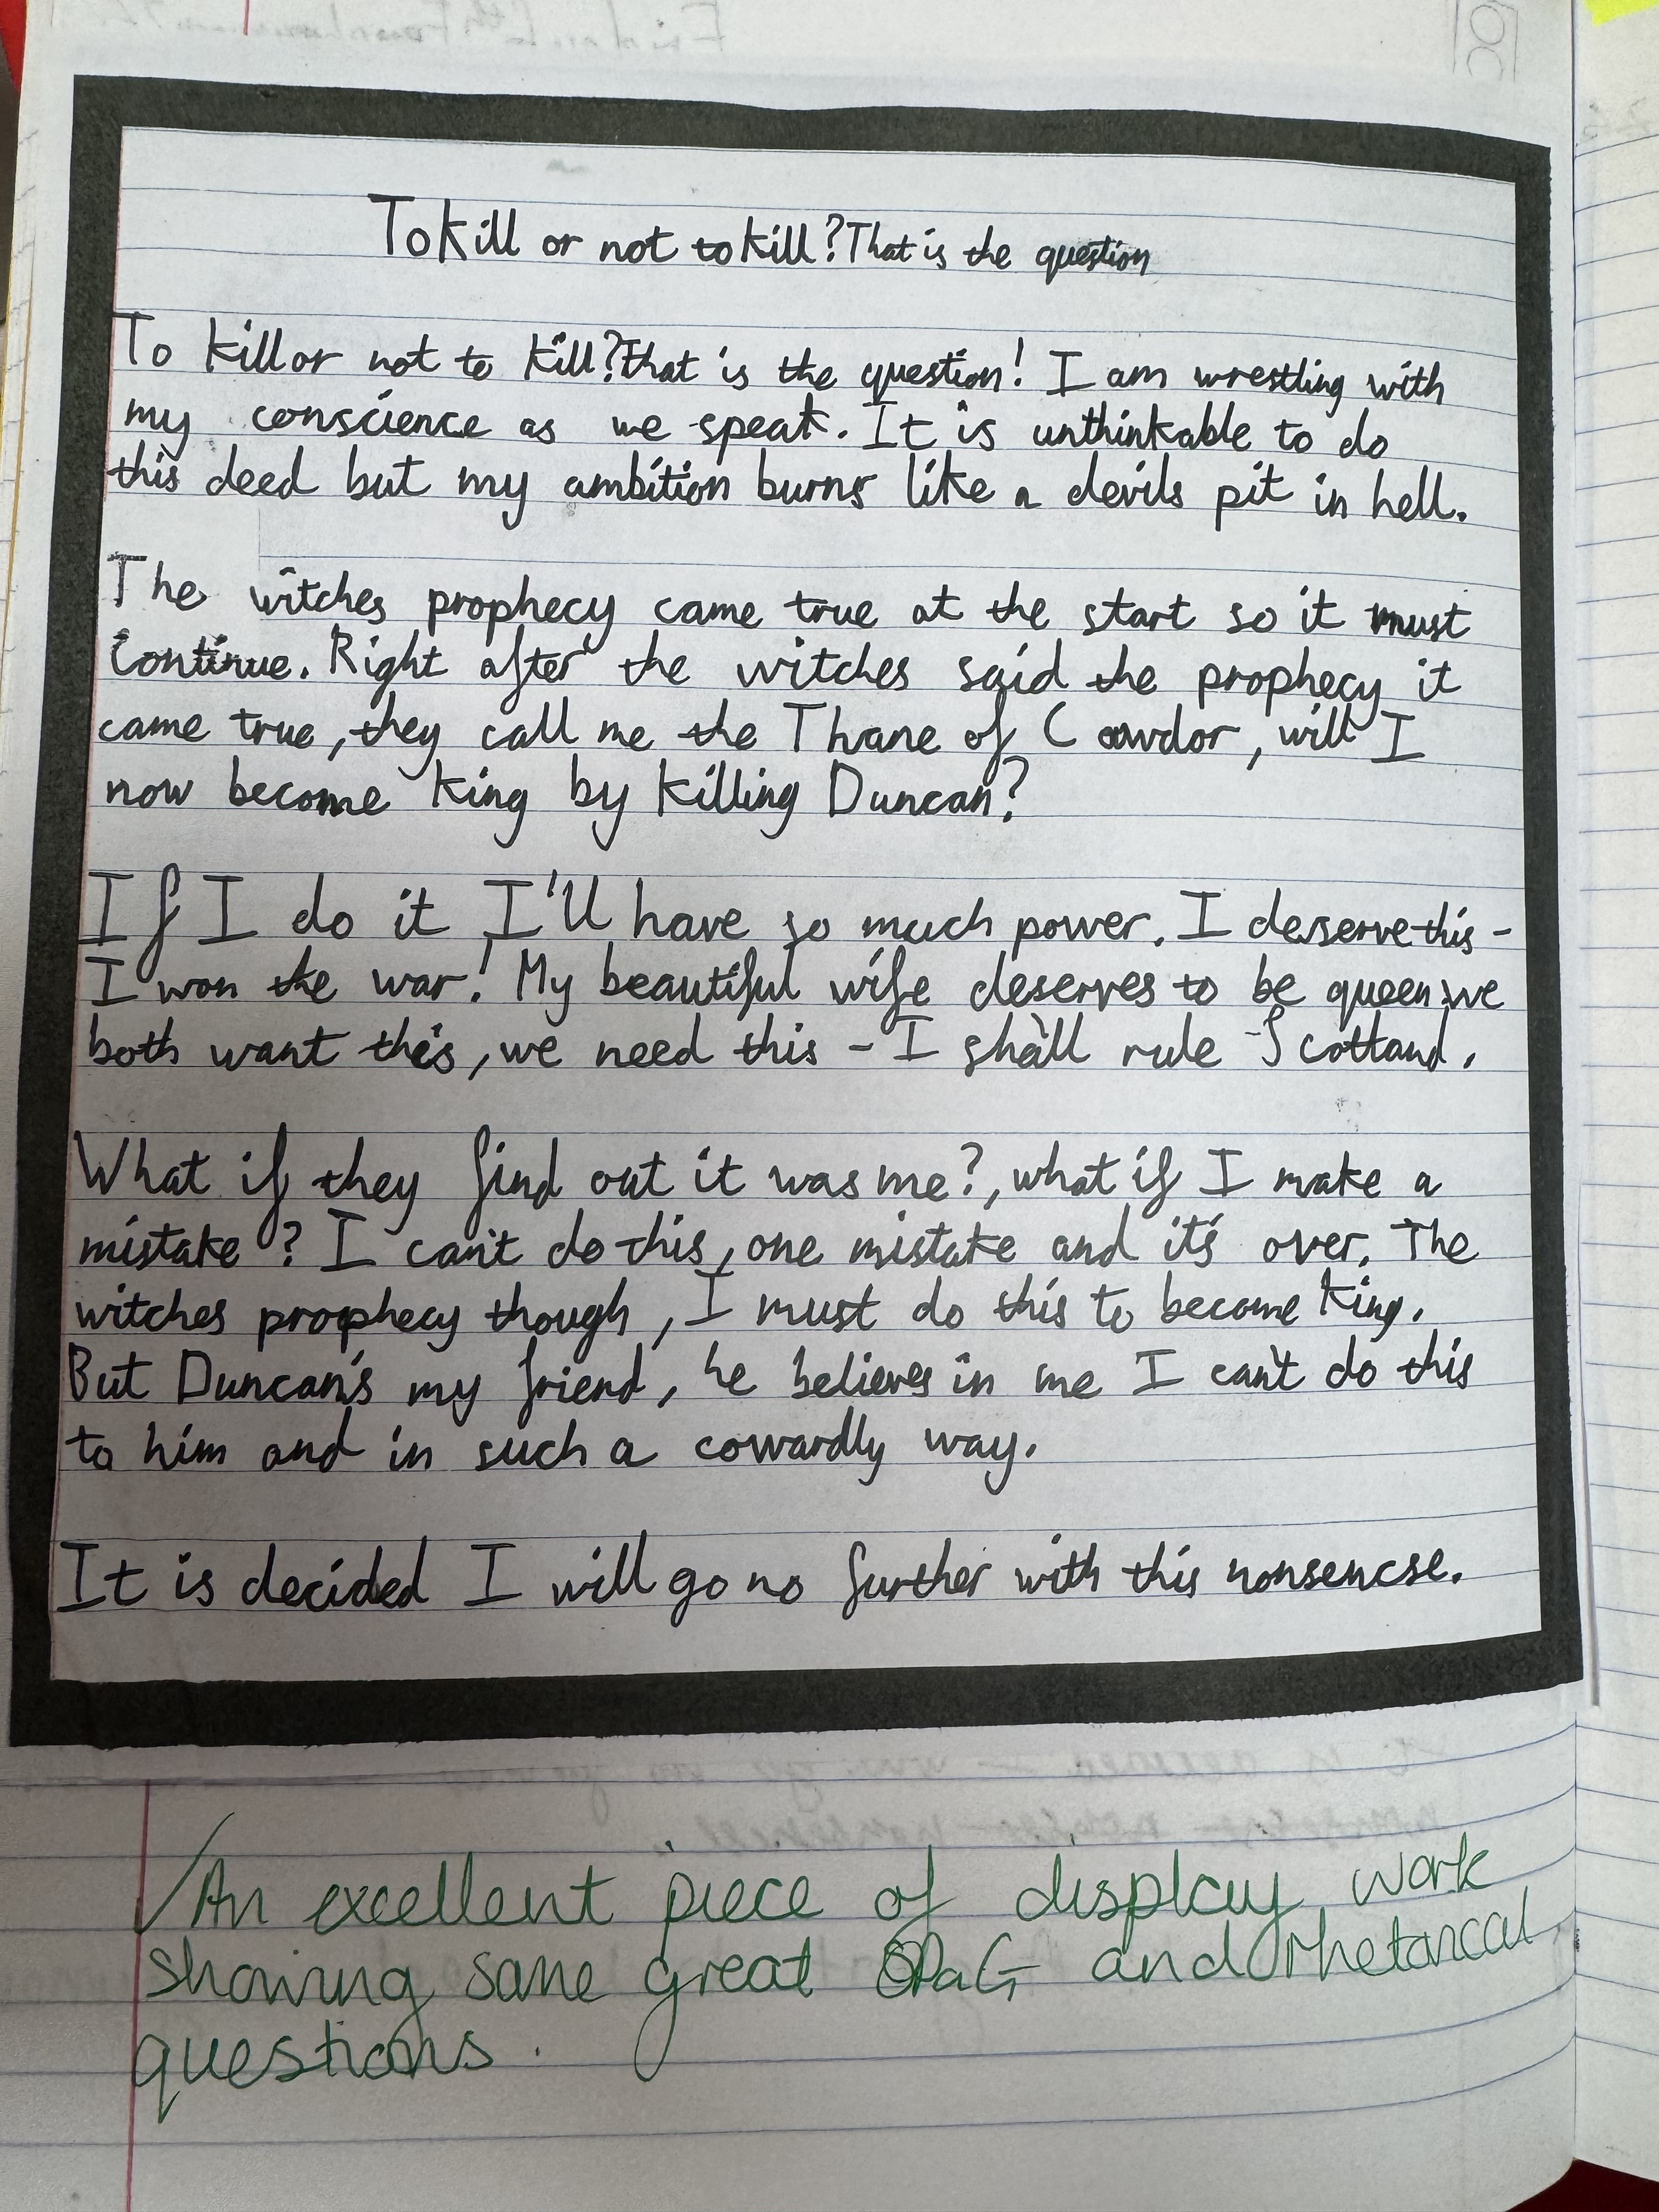 To kill or not to kill? That is the question
To kill or not to kill? that is the question! I am wrestling with
my conscience as we speak. It is unthinkable to do
this deed but my ambition burns like a devils pit in hell.
The witches prophecy came true at the start so it must
continue. Right after the witches said the prophecy it
came true, they call me the Thane of Cawdor, will I
now become king by killing Duncan?
If I do it I'll have so much power. I deserve this -
I won the war! My beautiful wife deserves to be queen we
both want this, we need this - I shall rule Scotland.
What if they find out it was me?, what if I make a
mistake? I can't do this, one mistake and it's over. The
witches prophecy though, I must do this to become king.
But Duncan's my friend, he believes in me I can't do this
to him and in such a cowardly way.
It is decided I will go no further with this nonsencse.
An excellent piece of display work
showing some great SPaG and rhetorical
questions.